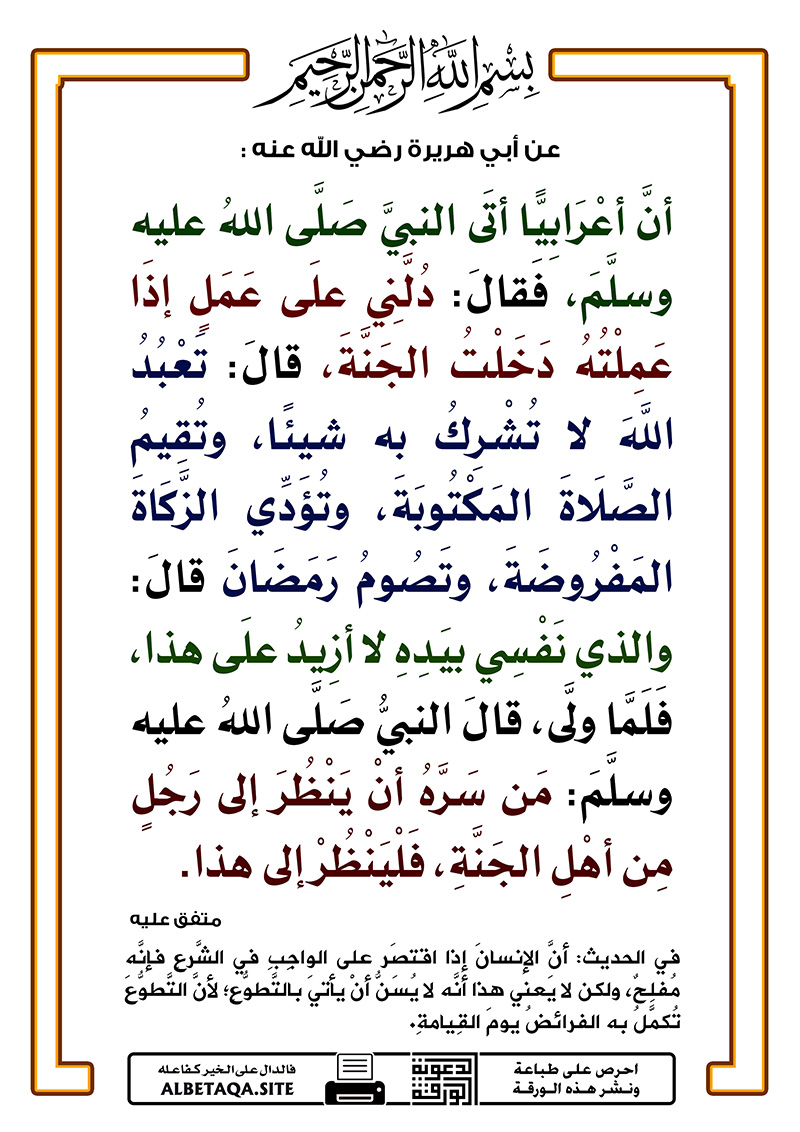 بِسْمِ اللَّهِ الرَّحْمَنِ الرَّحِيمِ
عن أبي هريرة رضي الله عنه :
أنَّ أعْرَابِيًّا أتَى النبيَّ صَلَّى اللهُ عليه
وسلَّمَ، فَقالَ: دُلَّنِي علَى عَمَلٍ إذَا
عَمِلْتُهُ دَخَلْتُ الجَنَّةَ، قالَ: تَعْبُدُ
اللَّهَ لا تُشْرِكُ به شيئًا، وتُقِيمُ
الصَّلَاةَ المَكْتُوبَةَ، وتُؤَدِّي الزَّكَاةَ
المَفْرُوضَةَ، وتَصُومُ رَمَضَانَ قالَ:
والذي نَفْسِي بيَدِهِ لا أزِيدُ علَى هذا،
فَلَمَّا ولَّى، قالَ النبيُّ صَلَّى اللهُ عليه
وسلَّمَ: مَن سَرَّهُ أنْ يَنْظُرَ إلى رَجُلٍ
مِن أهْلِ الجَنَّةِ، فَلْيَنْظُرْ إلى هذا.
متفق عليه
في الحديث: أنَّ الإنسانَ إذا اقتصَر على الواجِبِ في الشَّرعِ فإنَّه
مُفلِحٌ، ولكن لا يَعني هذا أنَّه لا يُسَنُّ أنْ يأتيَ بالتَّطوُّع؛ لأنَّ التَّطوُّعَ
تُكمَّلُ به الفرائضُ يومَ القِيامةِ.
احرص على طباعة
ونشر هذه الورقة
الورقة الدعوية
فالدال على الخير كفاعله
ALBETAQA.SITE